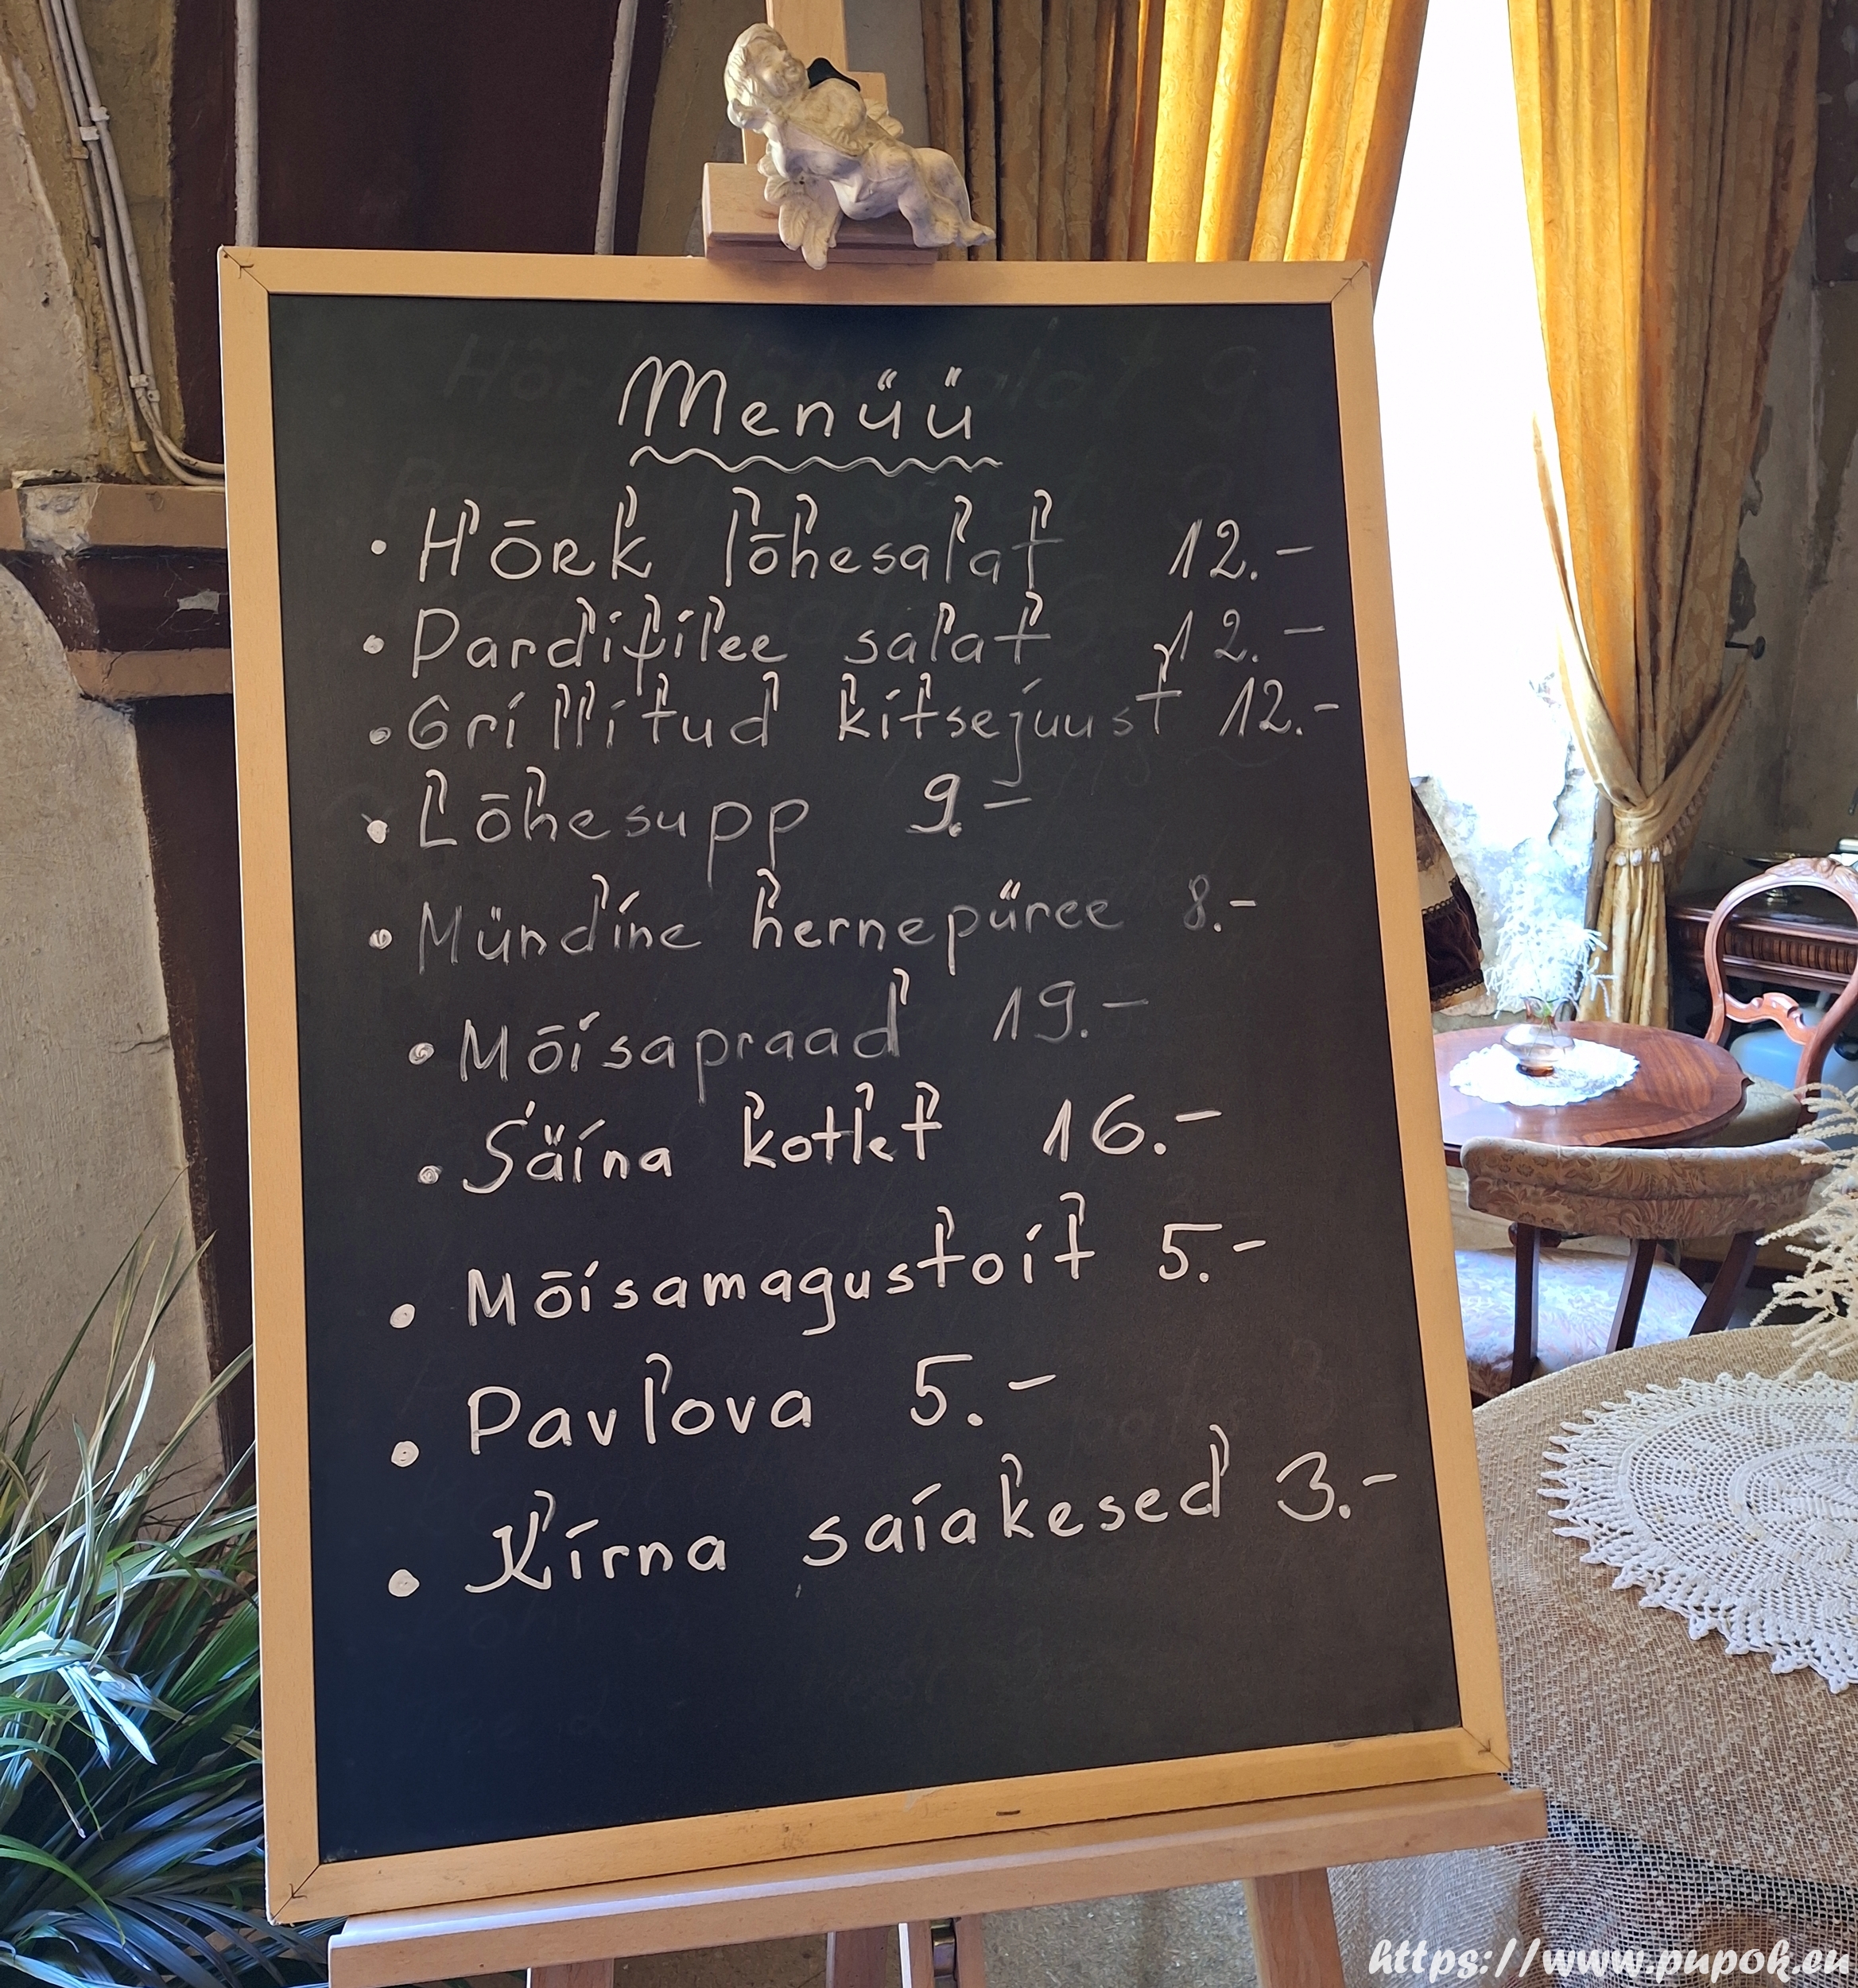 Menüü
• Hõrk lõhesalat 12.-
• Pardifilee salat 12.-
• Grillitud kitsejuust 12.-
• Lõhesupp 9.-
• Mündine hernepüree 8.-
• Mõisapraad 19.-
• Säina kotlet 16.-
• Mõisamagustoit 5.-
• Pavlova 5.-
• Kirna saiakesed 3.-
https://www.pupok.eu